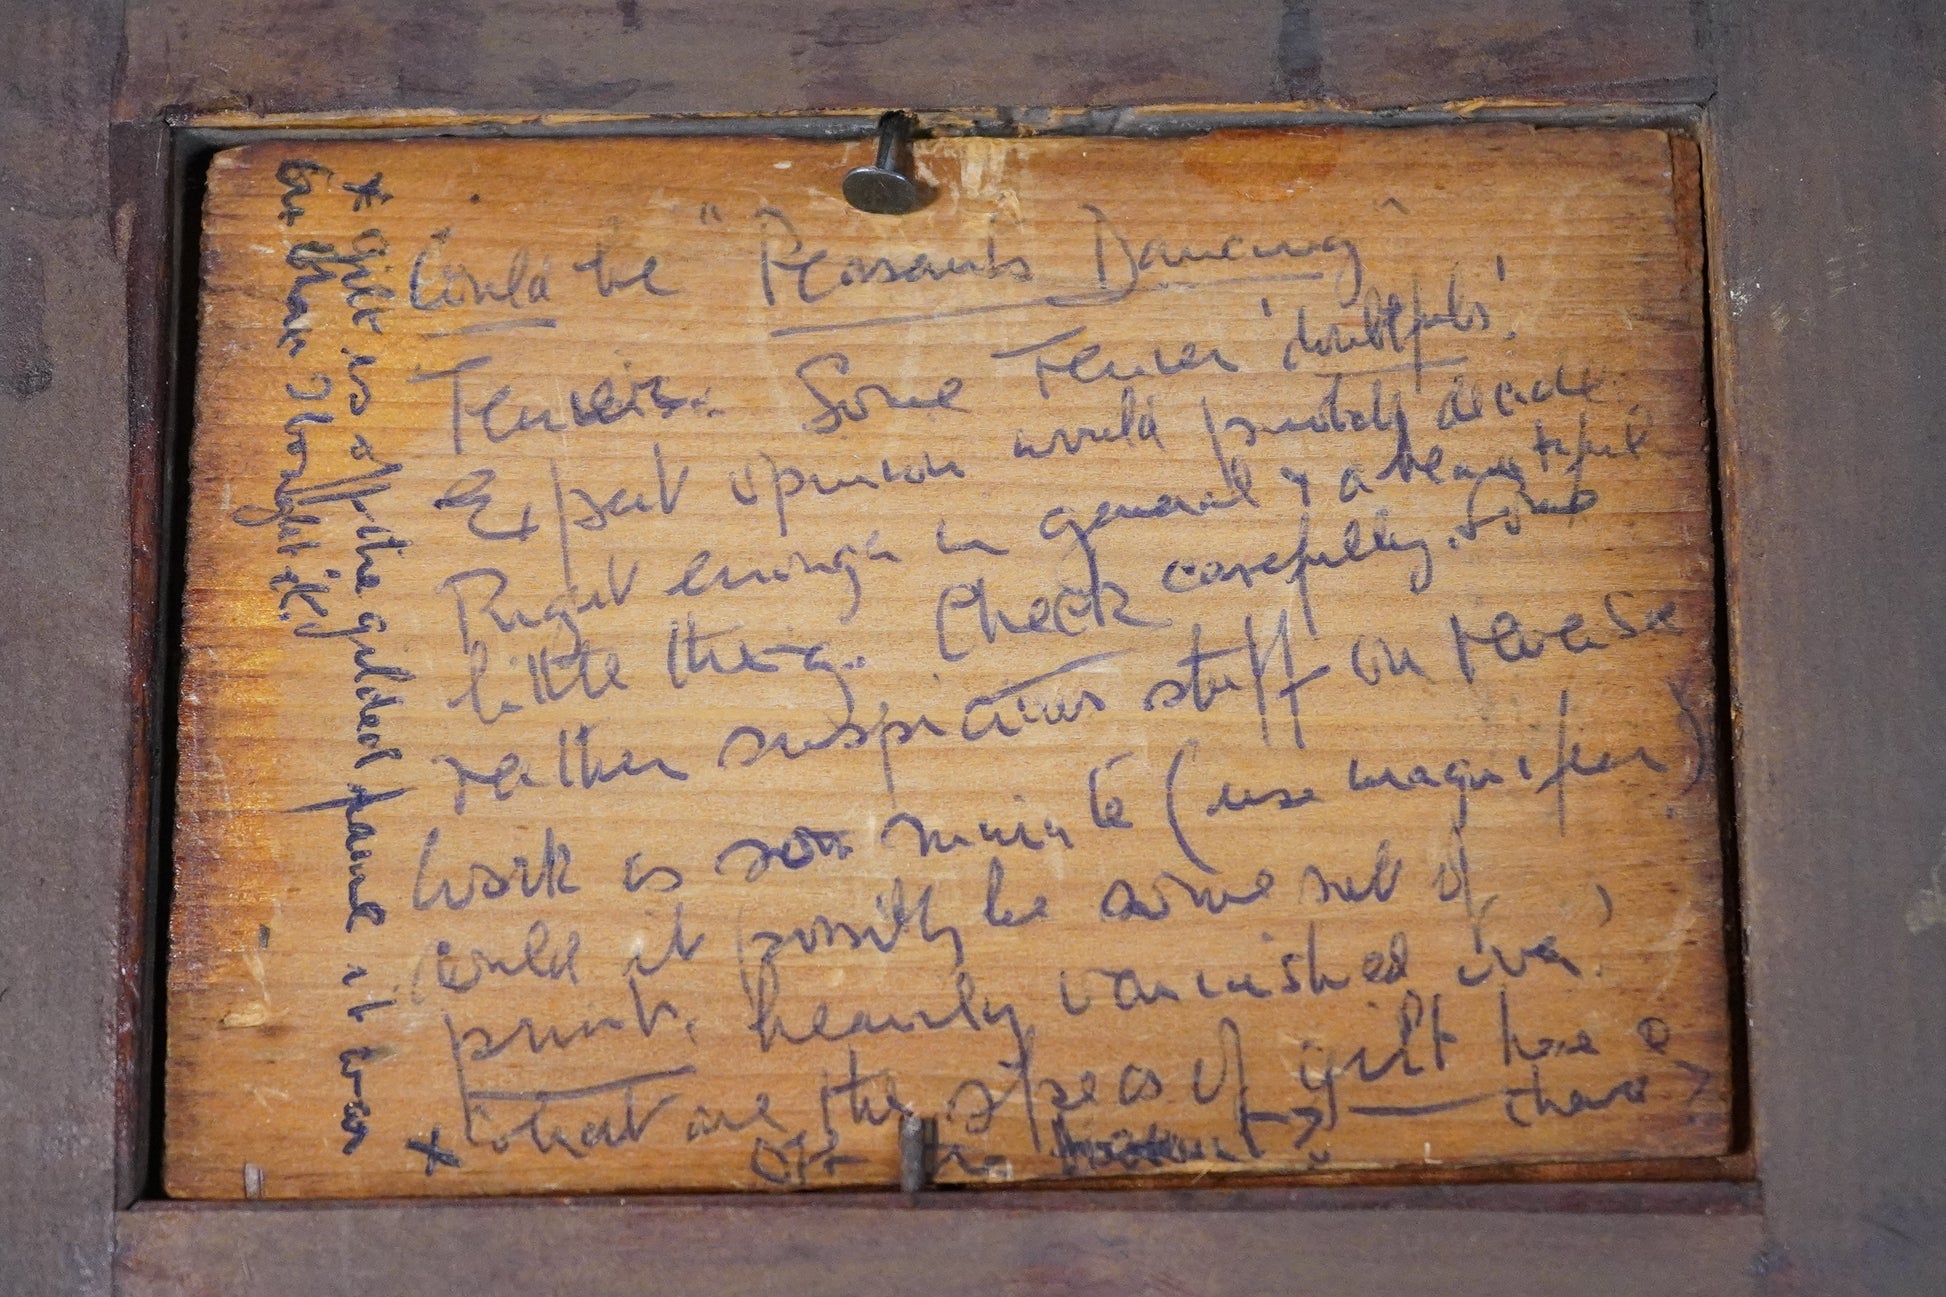 Could be "Peasants Dancing"
Teniers. Some Tenier 'doubtfuls'.
Expert opinion would probably decide.
Right enough in general & a beautiful
little thing. Check carefully. Some
rather suspicious stuff on reverse
Work is so minute (use magnifier)
could it possibly be some sort of
print, heavily varnished over?
* What are the specs of gilt here &
there?
Off the mount?
* Gilt is off the gilded panel it was
on when I bought it.